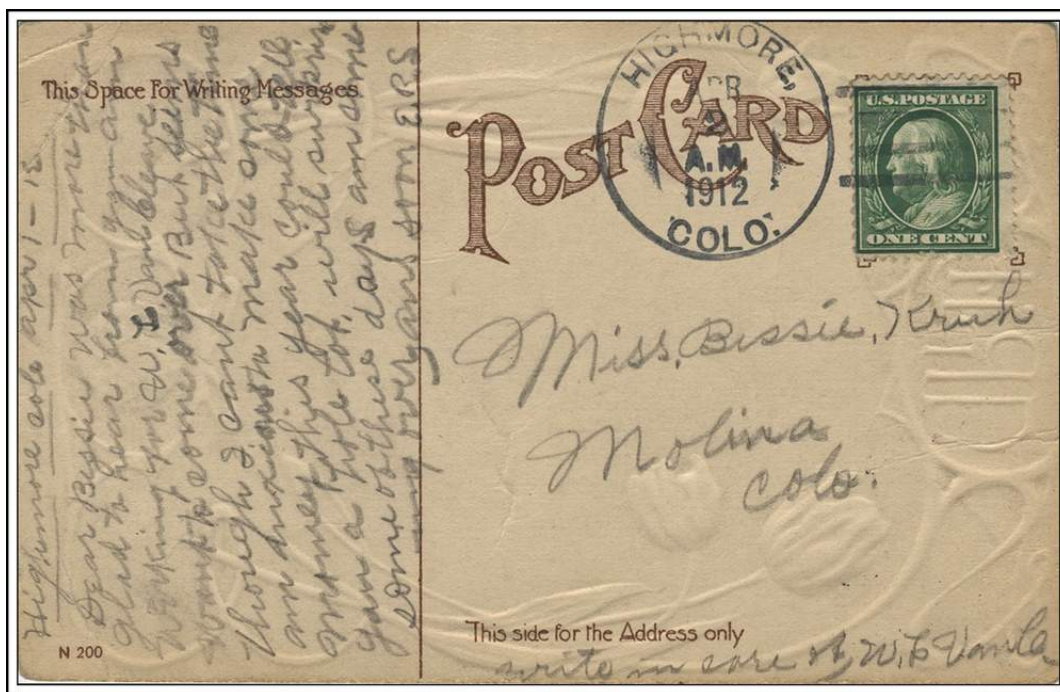 This Space For Writing Messages
Highmore colo apr 1 - 12
Dear Bessie was more than
glad to hear from you am
working for W. L Vancleave
want to come over But seems
though I cant take the time
am anxious to make some
money this year could tell
you a hole lot, will surprise
some of these days am come
ing over and soon P.R.S
N 200
POST CARD
HIGHMORE,
APR
2
A.M.
1912
COLO.
U.S. POSTAGE
ONE CENT
Miss, Bessie, Krush
Molina
Colo.
This side for the Address only
write in care of W. L Vancle